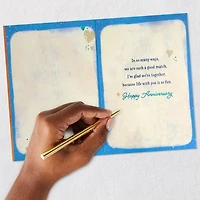 In so many ways,
we are such a good match.
I'm glad we're together,
because life with you is so fun.
Happy Anniversary